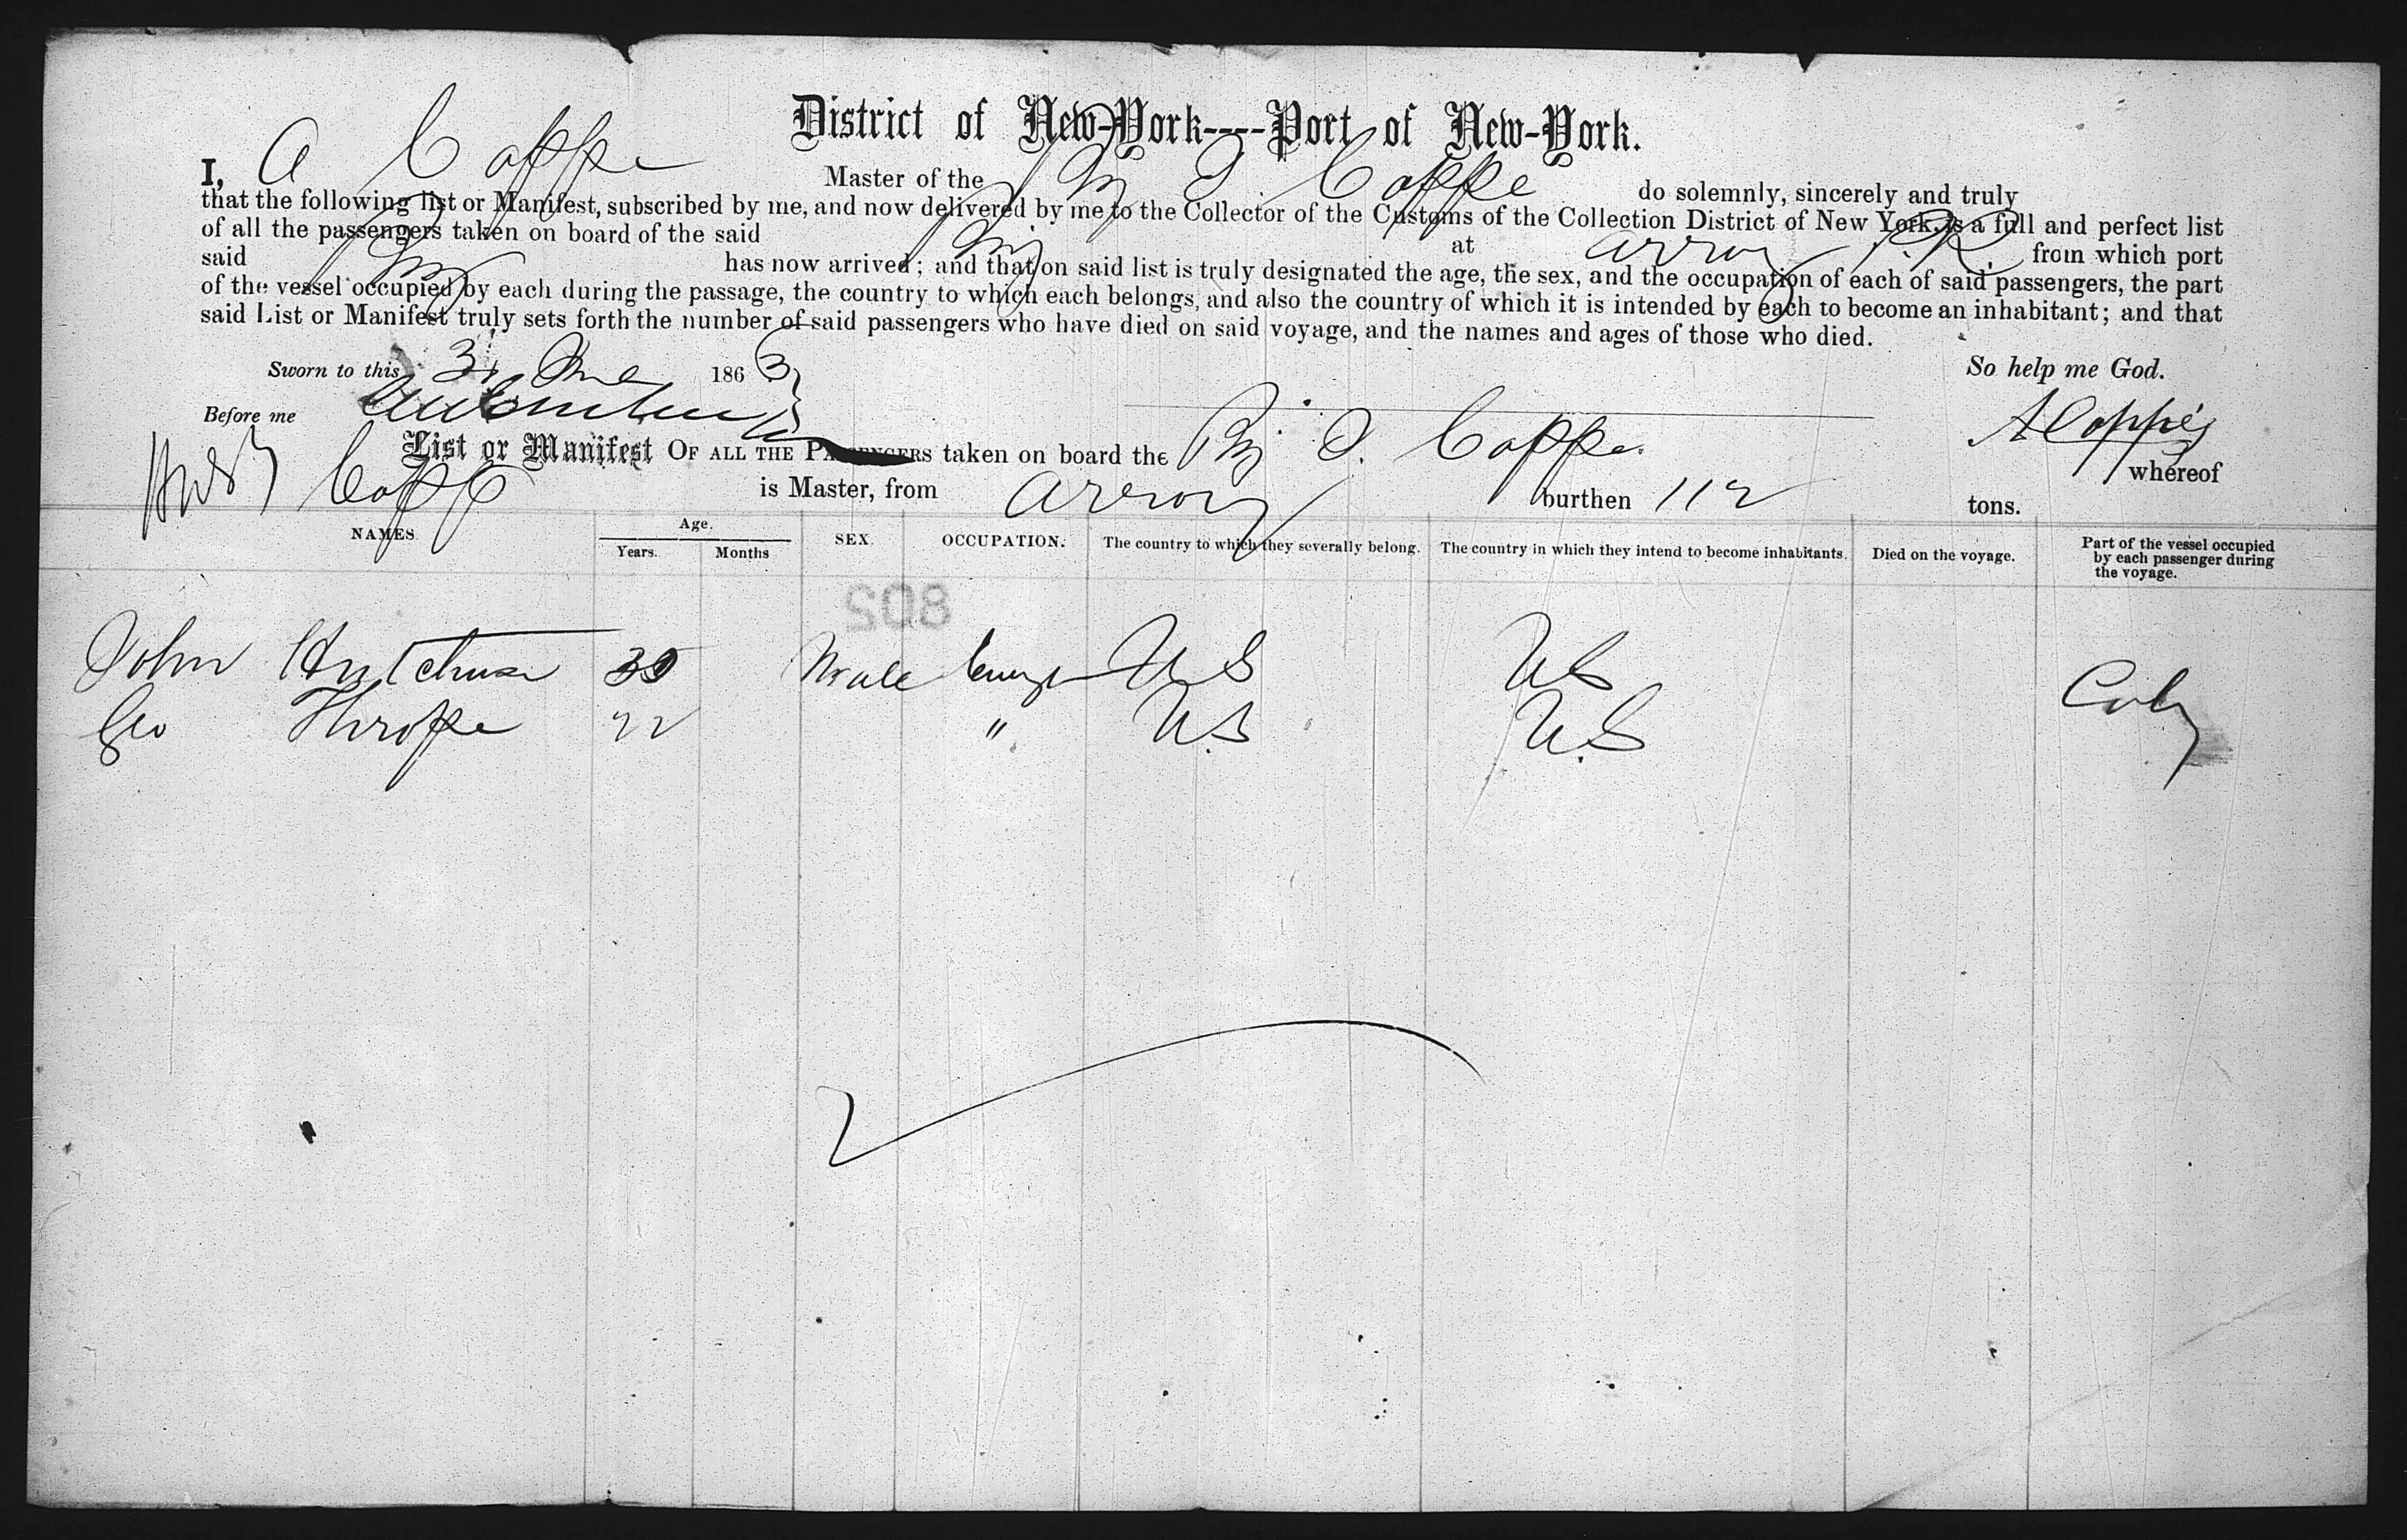 District of New-York----Port of New-York.
I, A Coffe Master of the Coffe do solemnly, sincerely and truly
that the following list or Manifest, subscribed by me, and now delivered by me to the Collector of the Customs of the Collection District of New York, is a full and perfect list
of all the passengers taken on board of the said at Arroy P.R. from which port
said has now arrived; and that on said list is truly designated the age, the sex, and the occupation of each of said passengers, the part
of the vessel occupied by each during the passage, the country to which each belongs, and also the country of which it is intended by each to become an inhabitant; and that
said List or Manifest truly sets forth the number of said passengers who have died on said voyage, and the names and ages of those who died.
Sworn to this 3 June 1863 So help me God.
Before me
List or Manifest OF ALL THE PASSENGERS taken on board the Coffe whereof
is Master, from Arroy burthen 112 tons.
NAMES. Age. Years. Months SEX. OCCUPATION. The country to which they severally belong. The country in which they intend to become inhabitants. Died on the voyage. Part of the vessel occupied by each passenger during the voyage.
808
John 35 Male US US
Geo Thropе 22 " U.S U.S